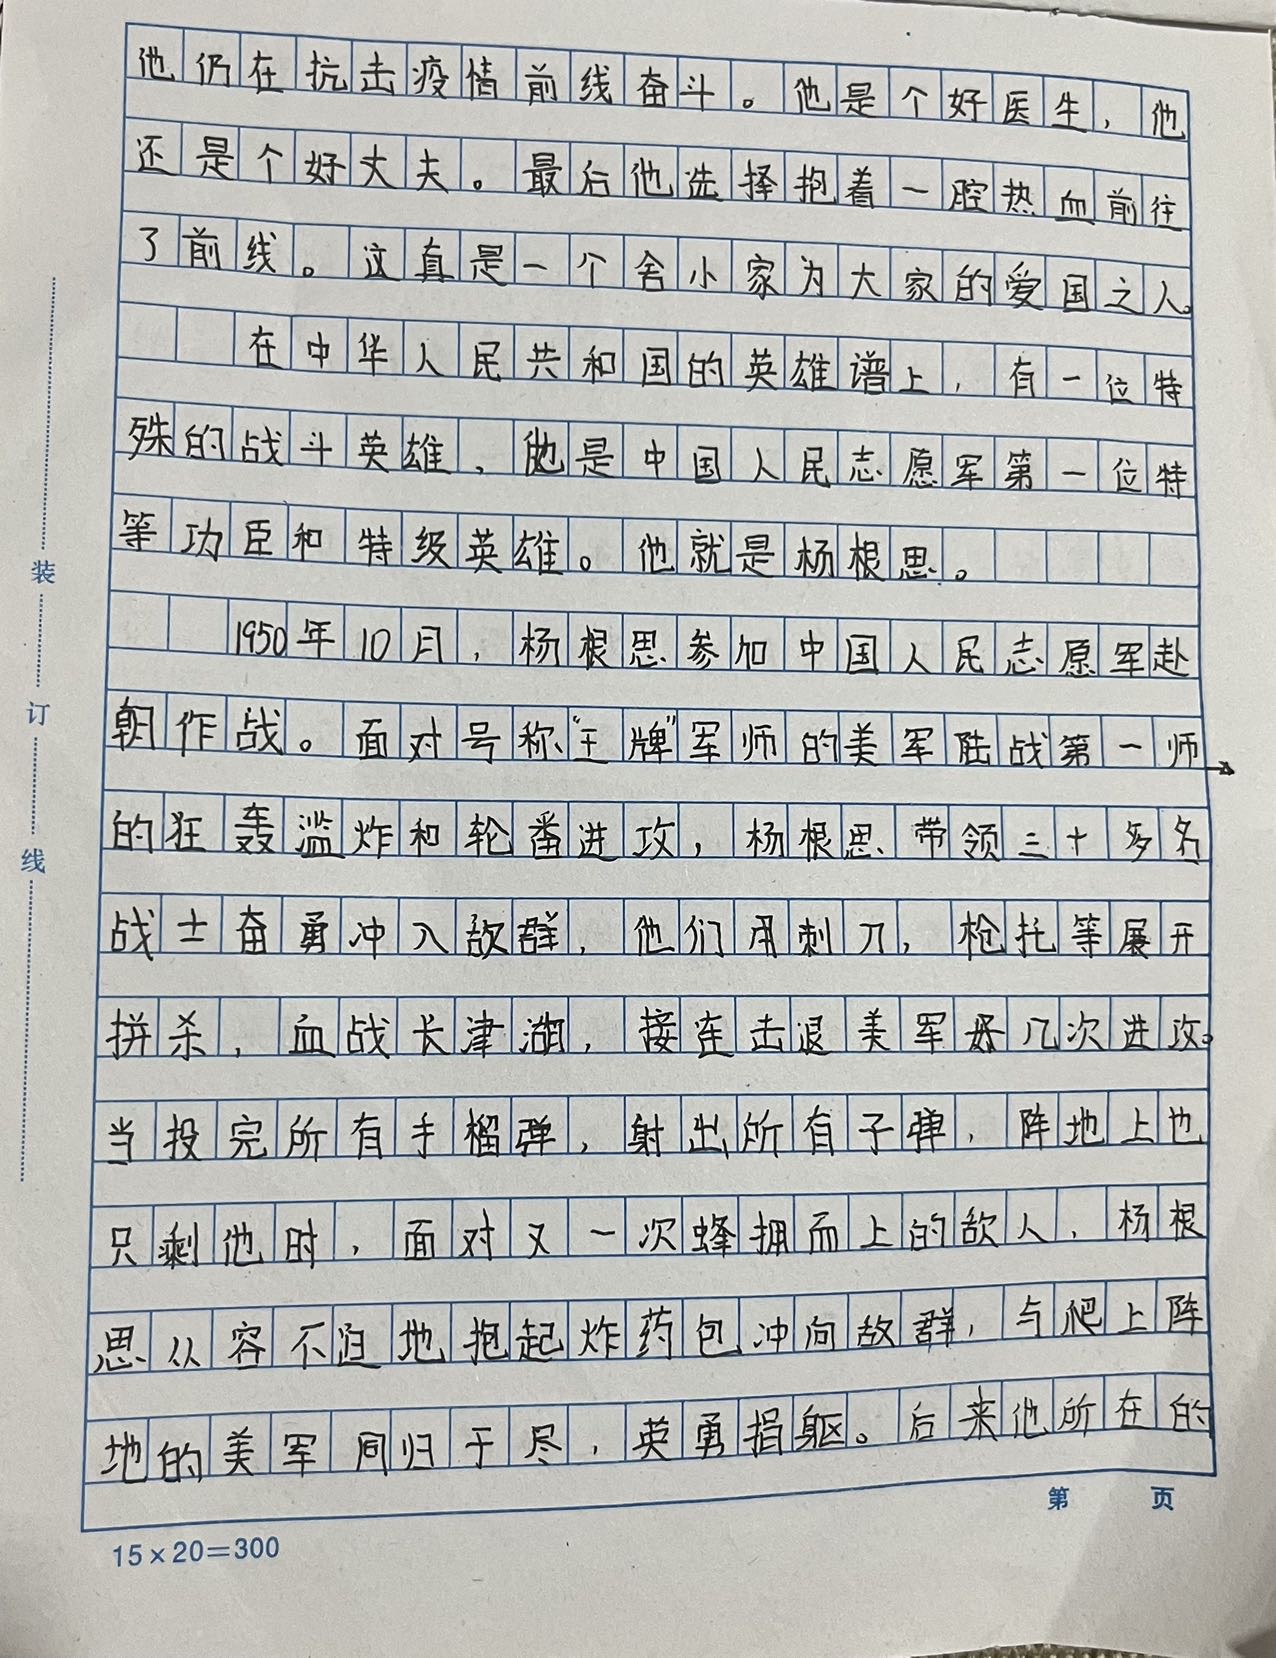 他仍在抗击疫情前线奋斗。他是个好医生，他
还是个好丈夫。最后他选择抱着一腔热血前往
了前线。这真是一个舍小家为大家的爱国之人。
在中华人民共和国的英雄谱上，有一位特
殊的战斗英雄，他是中国人民志愿军第一位特
等功臣和特级英雄。他就是杨根思。
1950年10月，杨根思参加中国人民志愿军赴
朝作战。面对号称“王牌”军师的美军陆战第一师
的狂轰滥炸和轮番进攻，杨根思带领三十多名
战士奋勇冲入敌群，他们用刺刀，枪托等展开
拼杀，血战长津湖，接连击退美军好几次进攻。
当投完所有手榴弹，射出所有子弹，阵地上也
只剩他时，面对又一次蜂拥而上的敌人，杨根
思从容不迫地抱起炸药包冲向敌群，与爬上阵
地的美军同归于尽，英勇捐躯。后来他所在的
装
订
线
第 页
15×20=300